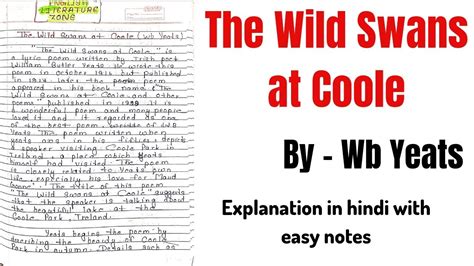 ENGLISH
LITERATURE
ZONE
"The Wild Swans at Coole (wb Yeats)
"The Wild Swans at Coole" is
a lyric poem written by Irish poet
William Butler Yeats. He wrote this
poem in October 1916 but published
in later the poem
appeared in his book name (The
Wild Swans at Coole and other
poems" published in It is
a wonderful poem and many people
loved it and it regarded as one
of the best poem written of WB
Yeats. The poem written when
yeats was in his fifties, depict
a speaker visiting Coole Park in
Ireland, a place which Yeats
himself had visited. The poem
is closely related to Yeats own
life, especially his love for Maud
Gonne. The title of this poem
The Wild Swans at Coole" suggests
that the speaker is talking about
the beautiful lake at the
Coole Park, Ireland.
Yeats begins the poem by
describing the beauty of Coole
Park in autumn. Details such as
The Wild Swans
at Coole
By - Wb Yeats
Explanation in hindi with
easy notes